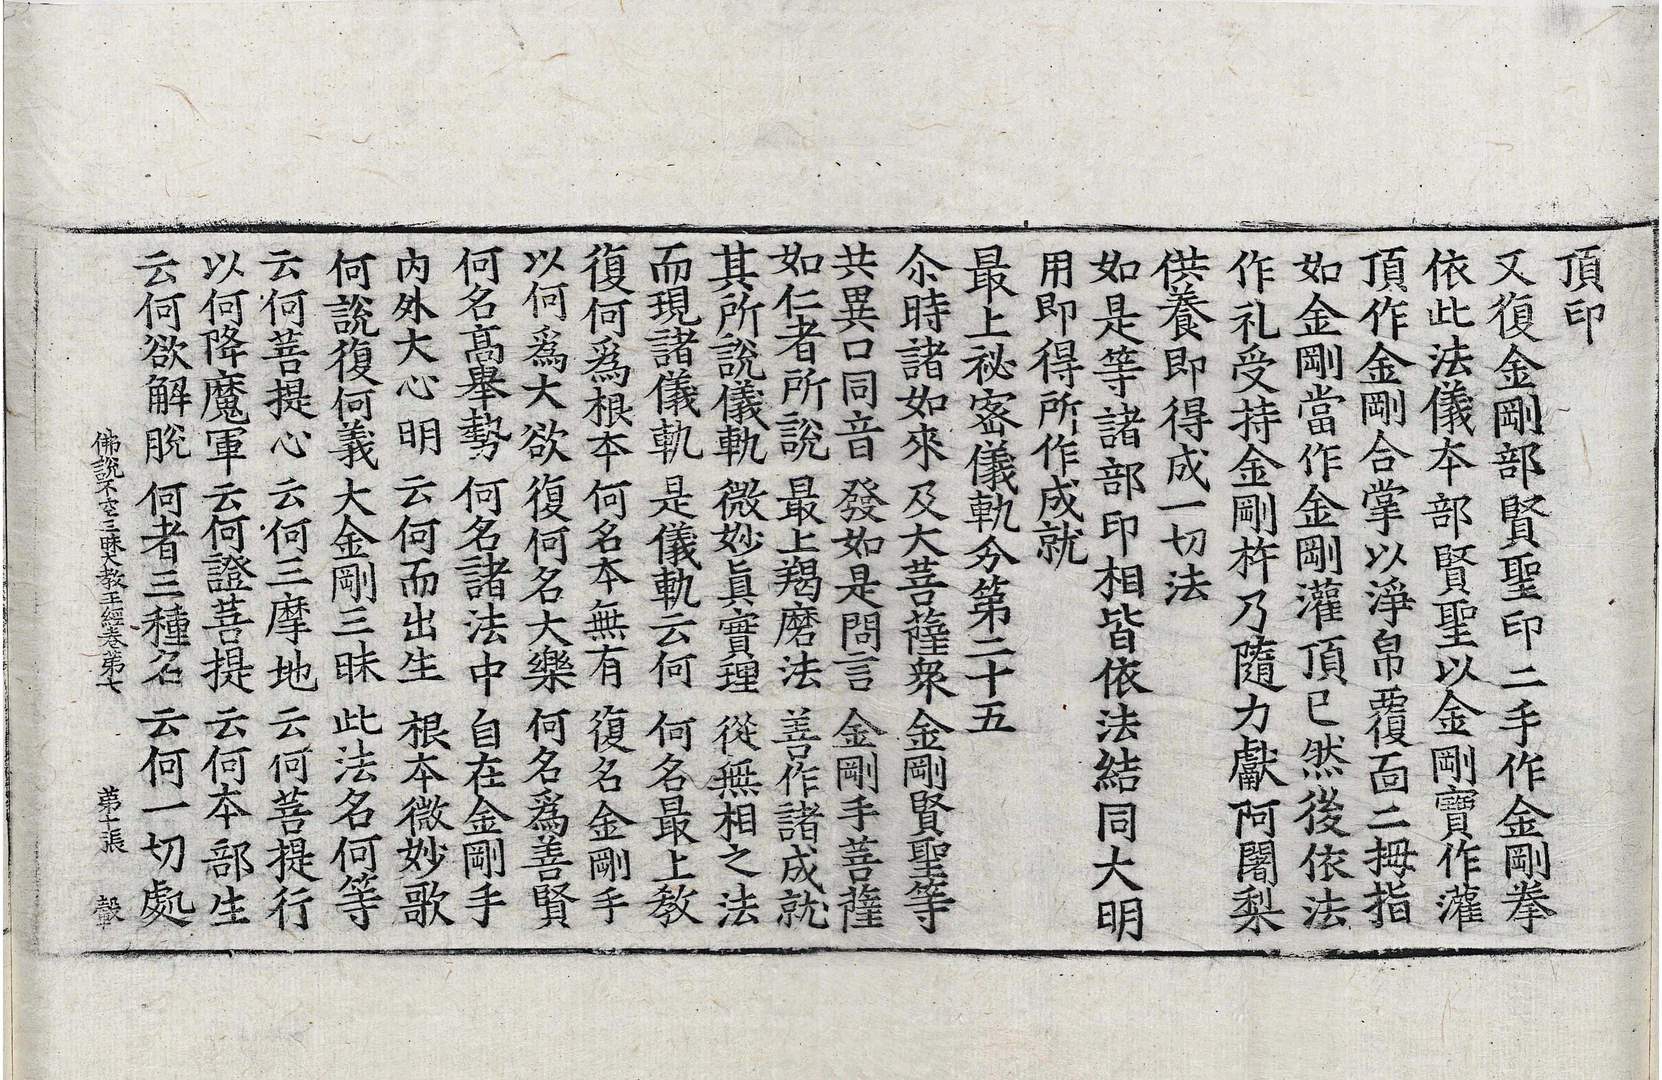 頂印
又復金剛部賢聖印二手作金剛拳
依此法儀本部賢聖以金剛寶作灌
頂作金剛合掌以淨帛覆面二拇指
如金剛當作金剛灌頂已然後依法
作礼受持金剛杵乃隨力獻阿闍梨
供養即得成一切法
如是等諸部印相皆依法結同大明
用即得所作成就
最上祕密儀軌分第二十五
尒時諸如來 及大菩薩衆 金剛賢聖等
共異口同音 發如是問言 金剛手菩薩
如仁者所說 最上羯磨法 善作諸成就
其所說儀軌 微妙眞實理 從無相之法
而現諸儀軌 是儀軌云何 何名最上教
復何爲根本 何名本無有 復名金剛手
以何爲大欲 復何名大樂 何名爲善賢
何名高舉勢 何名諸法中 自在金剛手
內外大心明 云何而出生 根本微妙歌
何說復何義 大金剛三昧 此法名何等
云何菩提心 云何三摩地 云何菩提行
以何降魔軍 云何證菩提 云何本部生
云何欲解脫 何者三種名 云何一切處
佛說不空三昧大教王經卷第七 第十張 轂